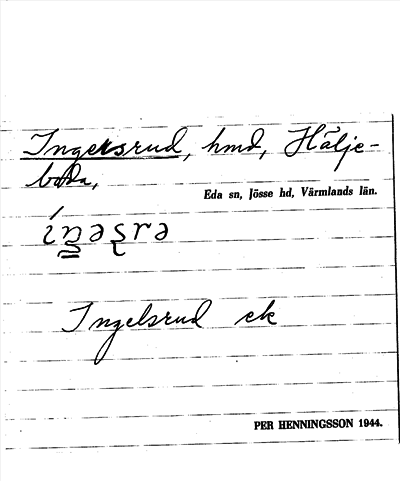 Ingersrud, hmd, Hälje-
boda,
Eda sn, Jösse hd, Värmlands län.
Ingelsrud ek
PER HENNINGSSON 1944.